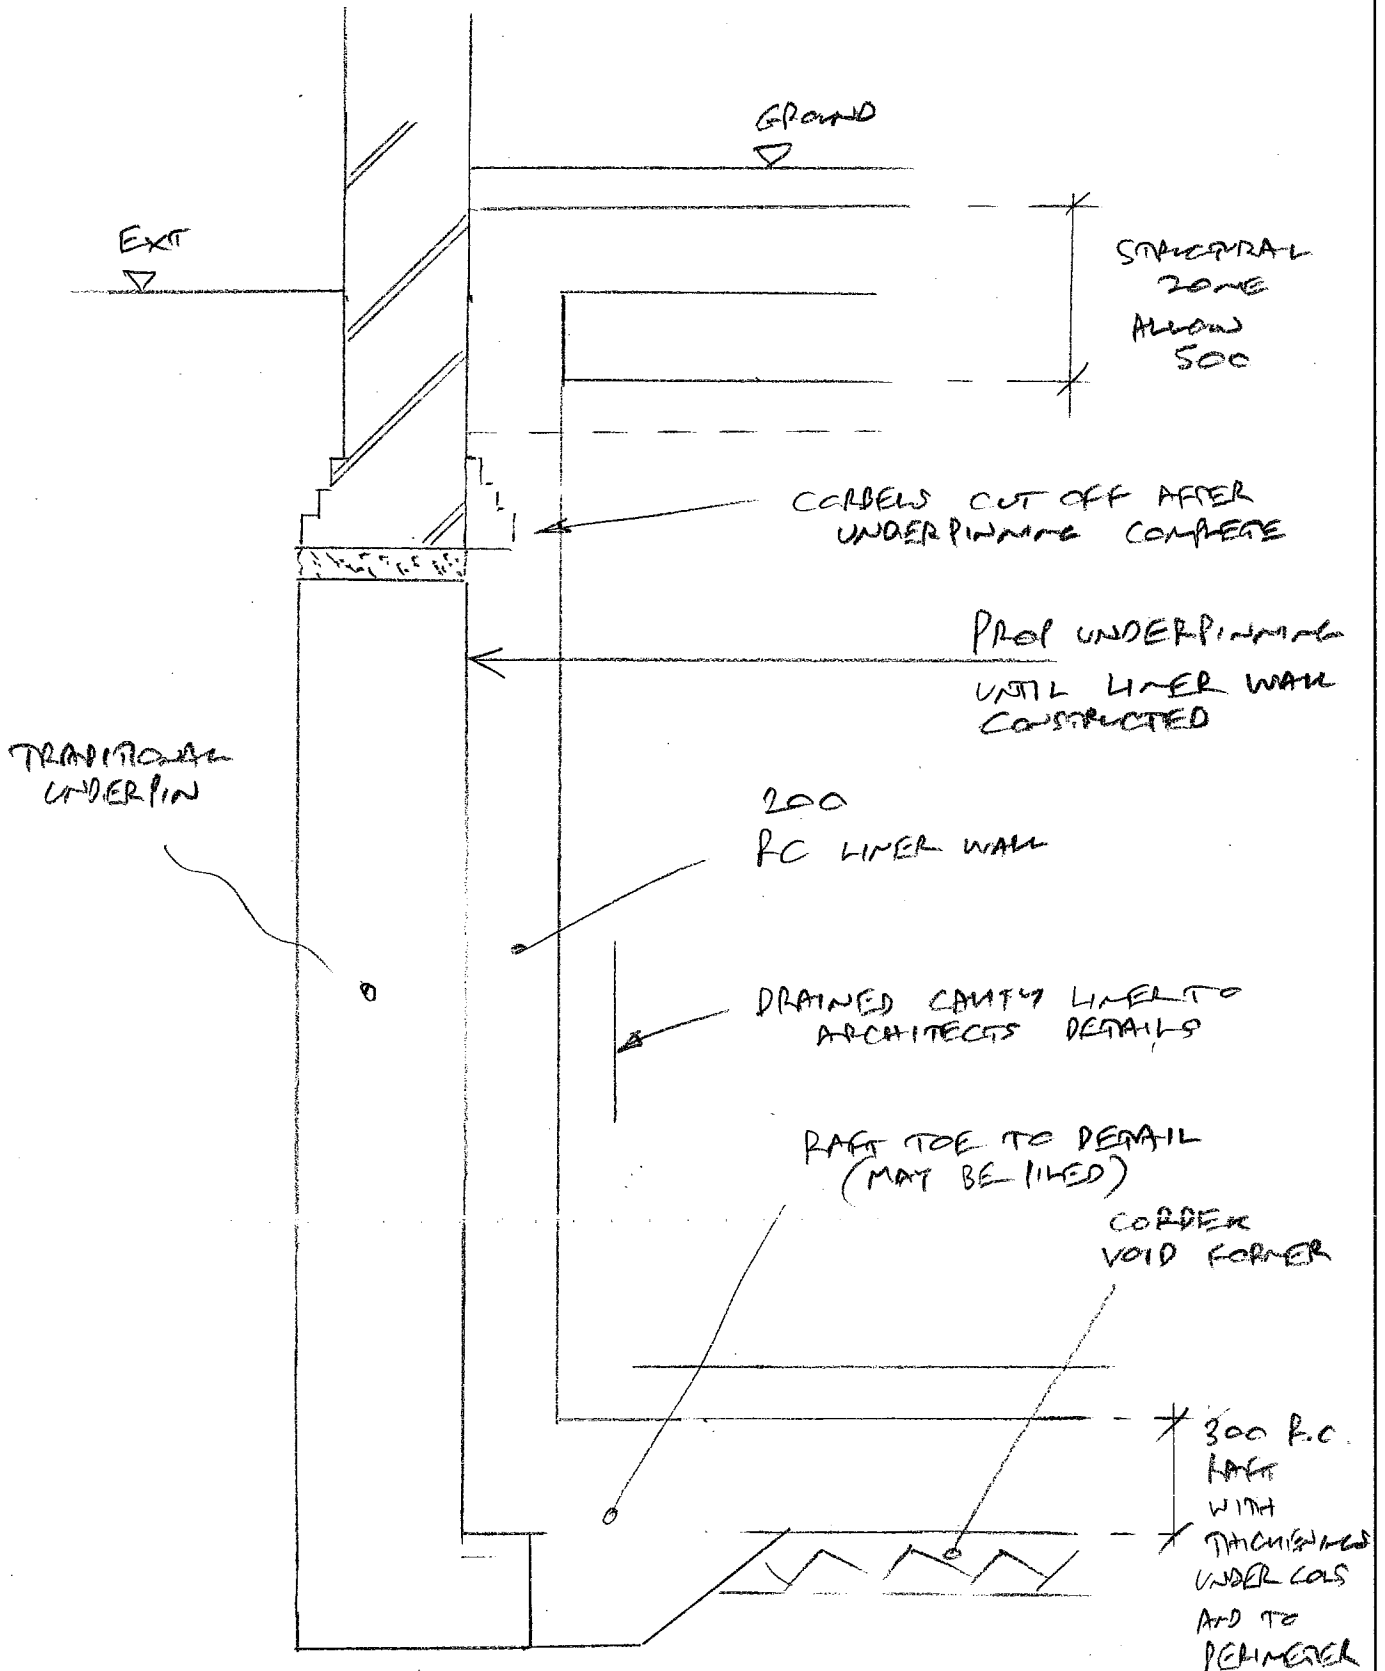 GROUND
EXT
STRUCTURAL
ZONE
ALLOW
500
CORBELS CUT OFF AFTER
UNDERPINNING COMPLETE
PROP UNDERPINNING
UNTIL LINER WALL
CONSTRUCTED
TRADITIONAL
UNDERPIN
200
RC LINER WALL
DRAINED CAVITY LINER TO
ARCHITECTS DETAILS
RAFT TOE TO DETAIL
(MAY BE PILED)
CORDEK
VOID FORMER
300 R.C.
RAFT
WITH
THICKENINGS
UNDER COLS
AND TO
PERIMETER